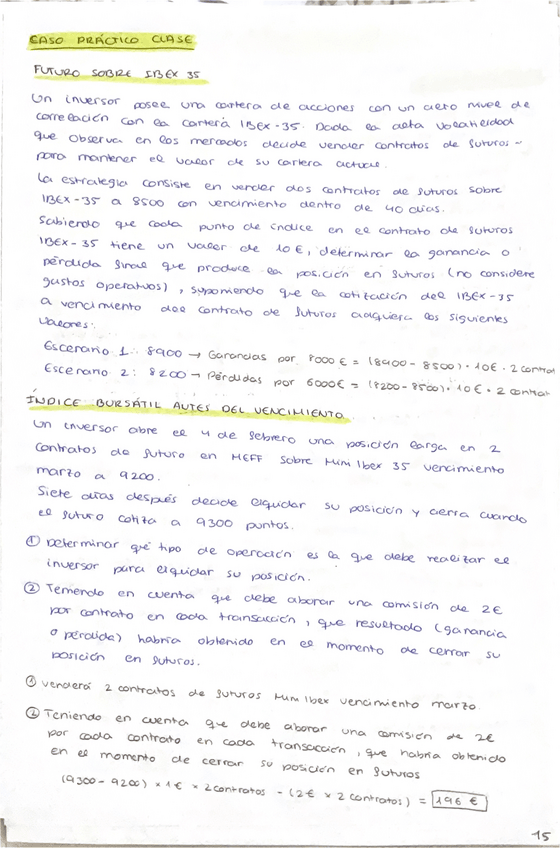 CASO PRÁCTICO CLASE
FUTURO SOBRE IBEX 35
Un inversor posee una cartera de acciones con un cierto nivel de
correlación con la cartera IBEX-35. Dada la alta volatilidad
que observa en los mercados decide vender contratos de futuros -
para mantener el valor de su cartera actual.
La estrategia consiste en vender dos contratos de futuros sobre
IBEX-35 a 8500 con vencimiento dentro de 40 días.
Sabiendo que cada punto de índice en el contrato de futuros
IBEX-35 tiene un valor de 10€, determinar la ganancia o
pérdida final que produce la posición en futuros (no considere
gastos operativos), suponiendo que la cotización del IBEX-35
a vencimiento del contrato de futuros adquiera los siguientes
valores:
Escenario 1: 8900 → Ganancias por 8000€ = (8900-8500)·10€·2 contrat
Escenario 2: 8200 → Pérdidas por 6000€ = (8200-8500)·10€·2 contrat
ÍNDICE BURSÁTIL ANTES DEL VENCIMIENTO
Un inversor abre el 4 de febrero una posición larga en 2
contratos de futuro en MEFF sobre Mini Ibex 35 vencimiento
marzo a 9200.
Siete días después decide liquidar su posición y cierra cuando
el futuro cotiza a 9300 puntos.
① Determinar qué tipo de operación es la que debe realizar el
inversor para liquidar su posición.
② Teniendo en cuenta que debe abonar una comisión de 2€
por contrato en cada transacción, que resultado (ganancia
o pérdida) habría obtenido en el momento de cerrar su
posición en futuros.
① Venderá 2 contratos de futuros Mini Ibex vencimiento marzo.
② Teniendo en cuenta que debe abonar una comisión de 2€
por cada contrato en cada transacción, que habría obtenido
en el momento de cerrar su posición en futuros
(9300-9200) x 1€ x 2contratos - (2€ x 2 contratos) = 196 €
15